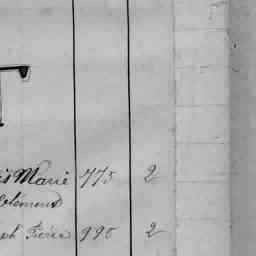 is Marie 775 2
Clément
ph Frère 990 2